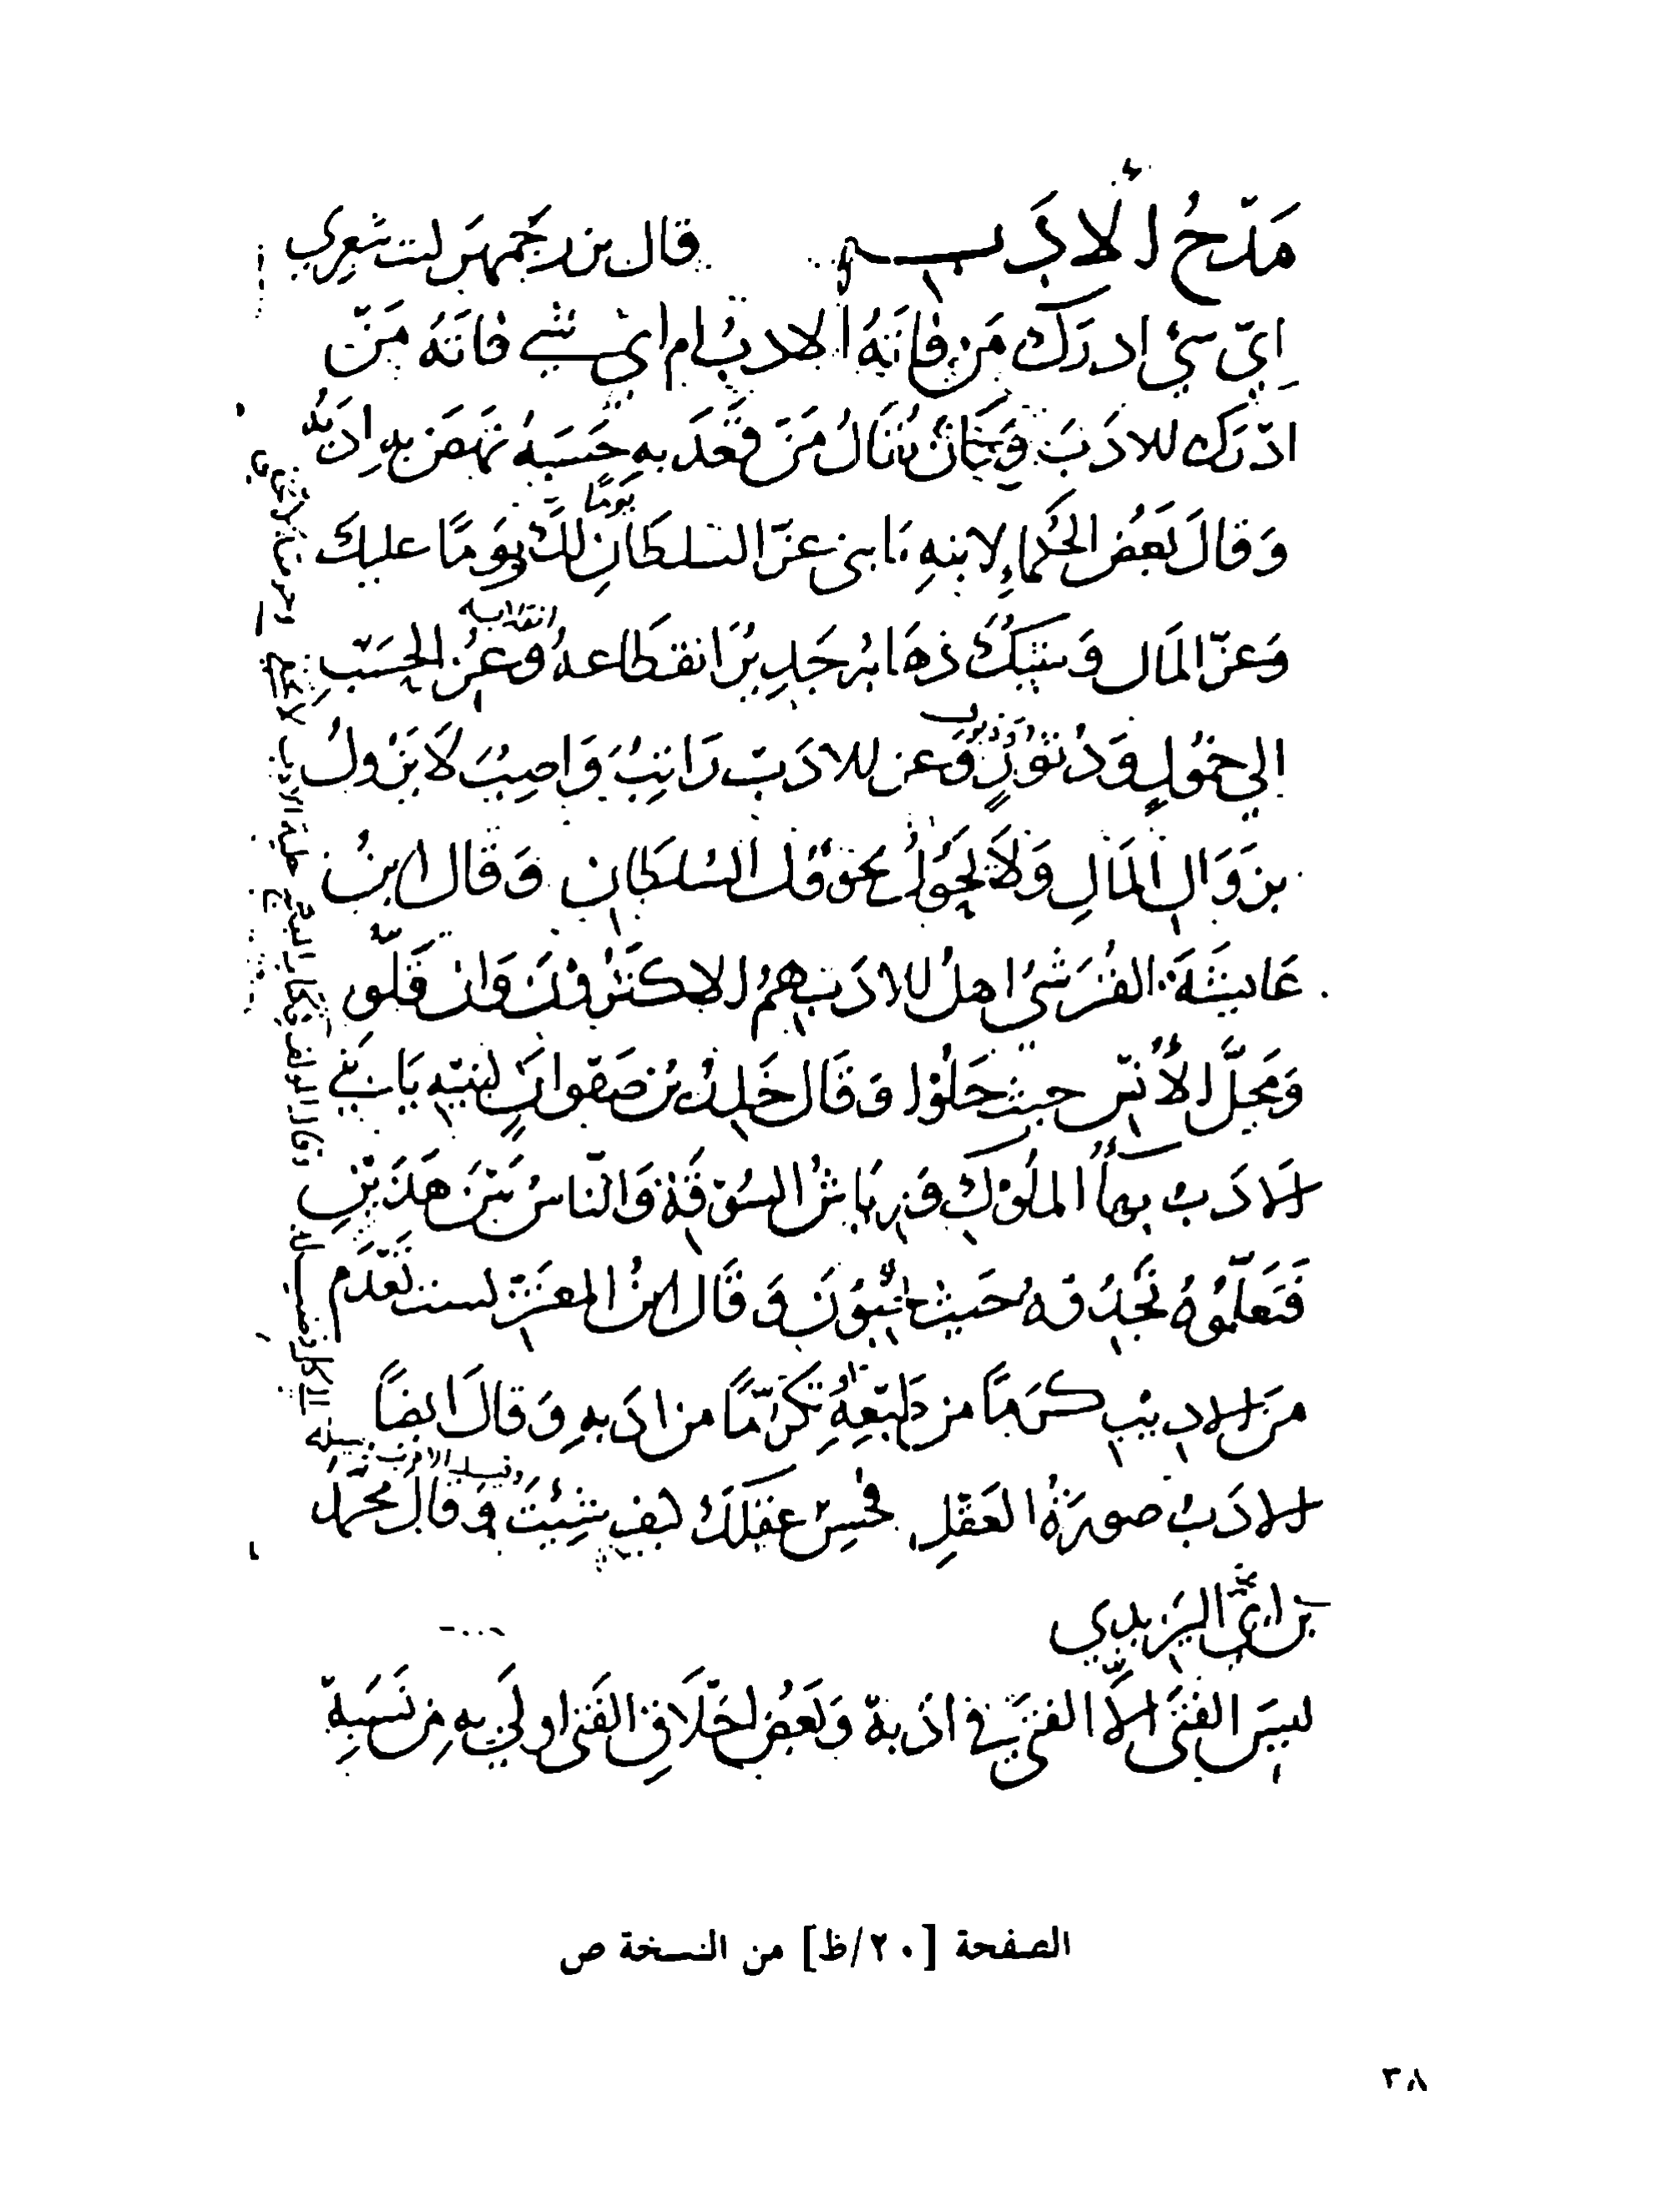 مدح الأدب قال بزرجمهر ليت شعري
أي شيء ادرك من فاته الأدب ام أي شيء فاته من
ادرك الادب وكان يقال من قعد به حسبه نهض به ادبه
وقال بعض الحكماء لابنه يا بني عز السلطان يوما لك ويوما عليك
وعز المال وشيك ذهابه جدير انقطاعه وانقلابه وعز الحسب
الي خمول ودثور وعز الادب راتب واصب لا يزول
بزوال المال ولا يحول بتحول السلطان وقال ابن
عايشة القرشي اهل الادب هم الاكثرون وان قلوا
ومحل الأنس حيث حلوا وقال خالد بن صفوان لبنيه يا بني
الادب بهاء الملوك ورياش السوقة والناس بين هذين
فتعلموه تجدوه حيث تحبون وقال ابن المعتز لست تعدم
من الاديب كرما من طبعه او تكرما من ادبه وقال ايضا
الادب صورة العقل فحسن عقلك كيف شئت وقال محمد
بن ابي اليزيدي
ليس الفتى الا الفتى في ادبه وبعض اخلاق الفتى اولى به من نسبه
الصفحة [٢٠/ظ] من النسخة ص
٣٨